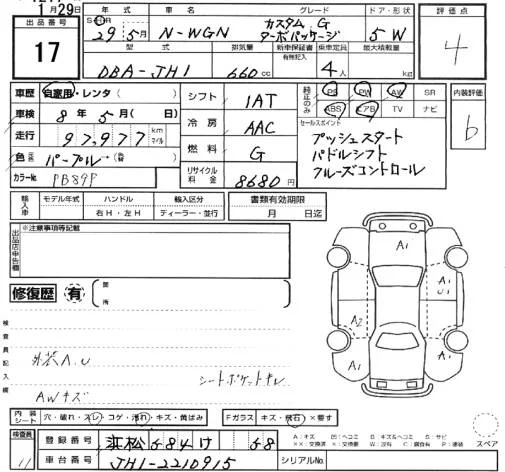 1月29日
出品番号 17
年式 S・H 29年5月
車名 N-WGN
グレード カスタム.G ターボパッケージ
ドア・形状 5W
評価点 4
型式 DBA-JH1
排気量 660cc
新車保証書 有無記載
乗車定員 4人
最大積載量 kg
車歴 自家用・レンタ( )
車検 8年5月( 日)
走行 97,977 km マイル
色 パープル→
カラーNo. PB89P
シフト 1AT
冷房 AAC
燃料 G
リサイクル料金 8680円
純正のみ PS PW AW SR
ABS エアB TV ナビ
内装評価 b
セールスポイント
プッシュスタート
パドルシフト
クルーズコントロール
輸入車 モデル年式 ハンドル 右H・左H 輸入区分 ディーラー・並行
書類有効期限 月 日迄
出品店申告欄 ※注意事項等記載
修復歴 有 箇所
検査員記入欄
外装A.U
シートポケットキレ
AWキズ
A1
A1
A1
U1
A2
A1
A1
内装シート 穴・破れ・スレ・コゲ・汚れ・キズ・黄ばみ
Fガラス キズ・飛石・×要す
検査員
登録番号 浜松 584 け 58
車台番号 JH1-2210915
シリアルNo.
A：キズ U：凹ヘコミ B：キズ&ヘコミ S：サビ
××：交換済 ×：要交換 W：波有 C：腐食有 P：塗装
スペア